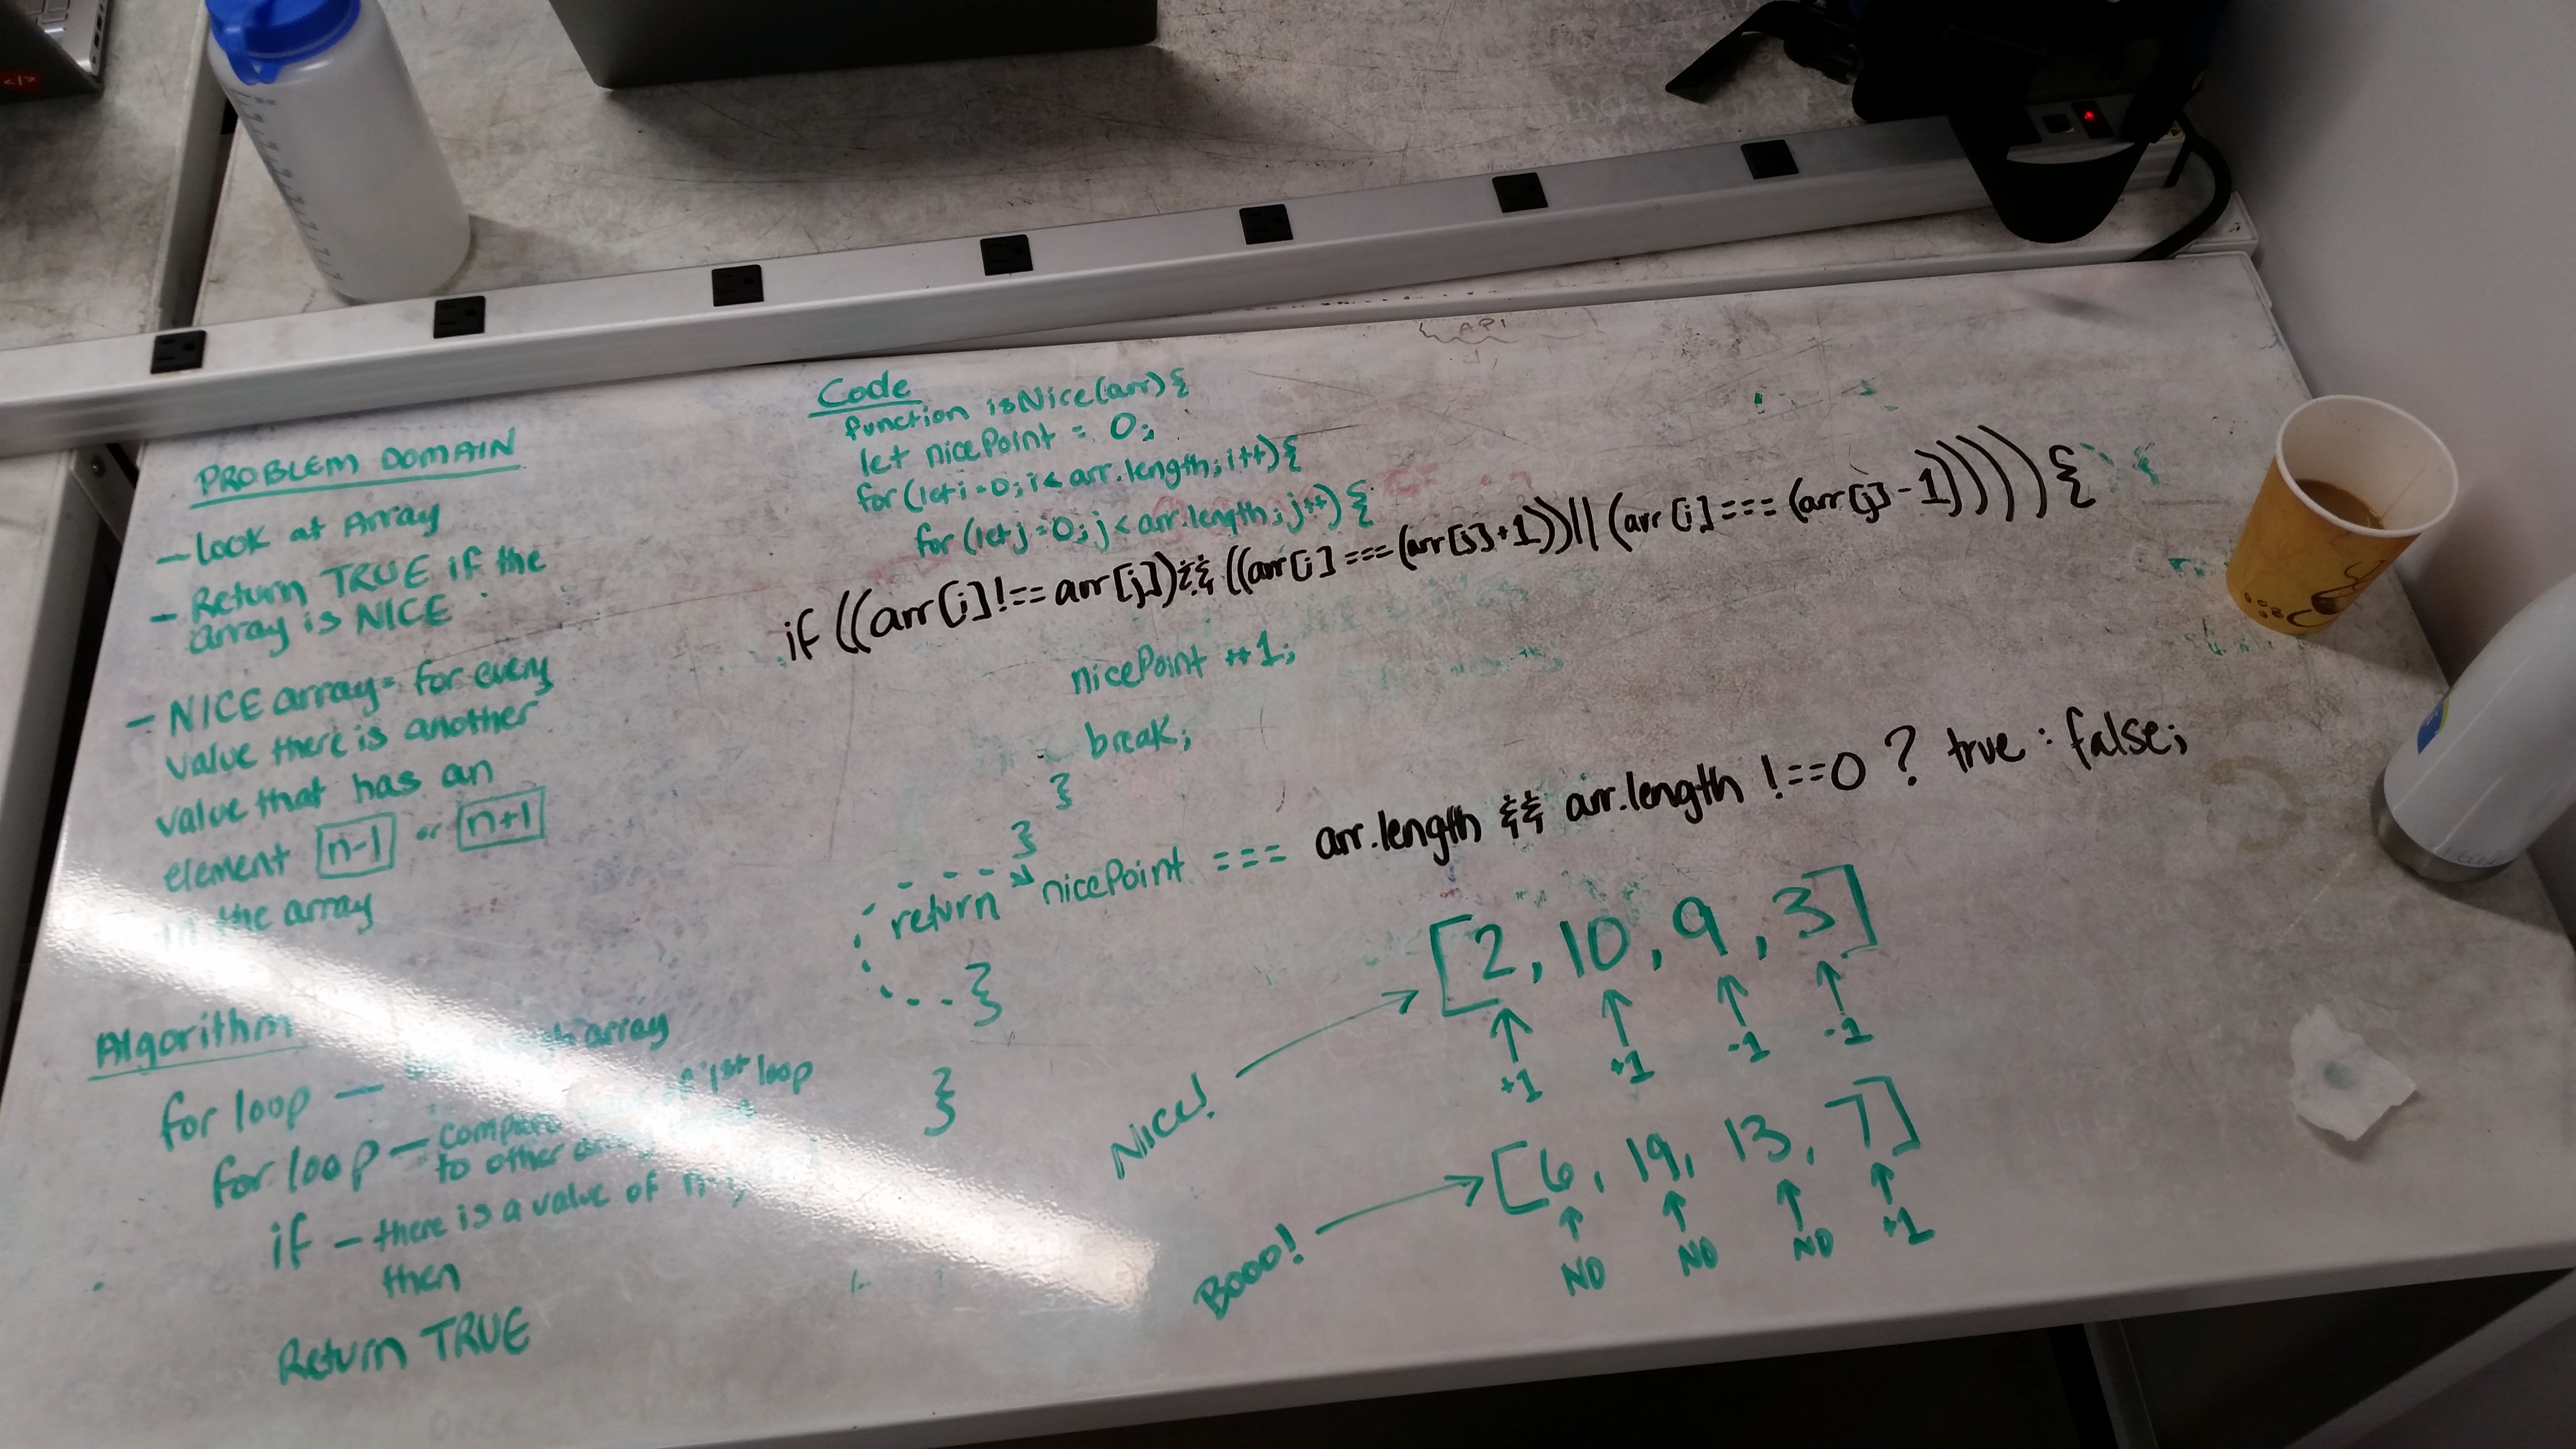 PROBLEM DOMAIN
- Look at Array
- Return TRUE if the
array is NICE
- NICE array = for every
value there is another
value that has an
element n-1 or n+1
in the array
Algorithm
for loop - array
for loop - compare of 1st loop
to other
if - there is a value of n-1
then
Return TRUE
Code
function isNice(arr){
let nicePoint = 0;
for(let i=0; i< arr.length; i++){
for(let j=0; j< arr.length; j++){
if ((arr[i]!== arr[j])&& ((arr[i] ===(arr[j]+1))||(arr[i]===(arr[j]-1))))){
nicePoint +=1;
break;
}
}
return nicePoint === arr.length && arr.length !==0 ? true : false;
}
}
NICE! [2, 10, 9, 3]
+1 +1 -1 -1
Booo! [6, 19, 13, 7]
NO NO NO +1
API